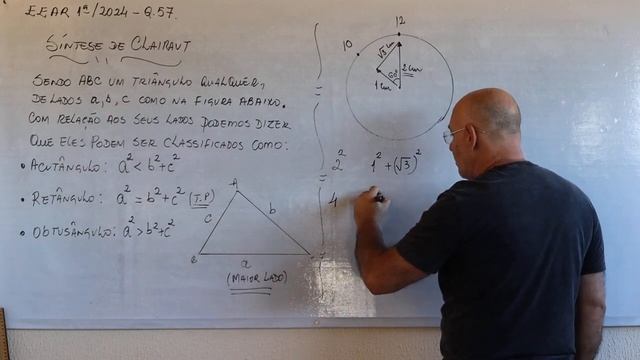 EEAR 1ª/2024 - Q.57.
SÍNTESE DE CLAIRAUT
SENDO ABC UM TRIÂNGULO QUALQUER,
DE LADOS a, b, c COMO NA FIGURA ABAIXO.
COM RELAÇÃO AOS SEUS LADOS PODEMOS DIZER
QUE ELES PODEM SER CLASSIFICADOS COMO:
• ACUTÂNGULO: a² < b² + c²
• RETÂNGULO: a² = b² + c² (T.P)
• OBTUSÂNGULO: a² > b² + c²
A
c b
B
a
(MAIOR LADO)
12
10
√3 cm
60°
2 cm
1 cm
2² 1² + (√3)²
4